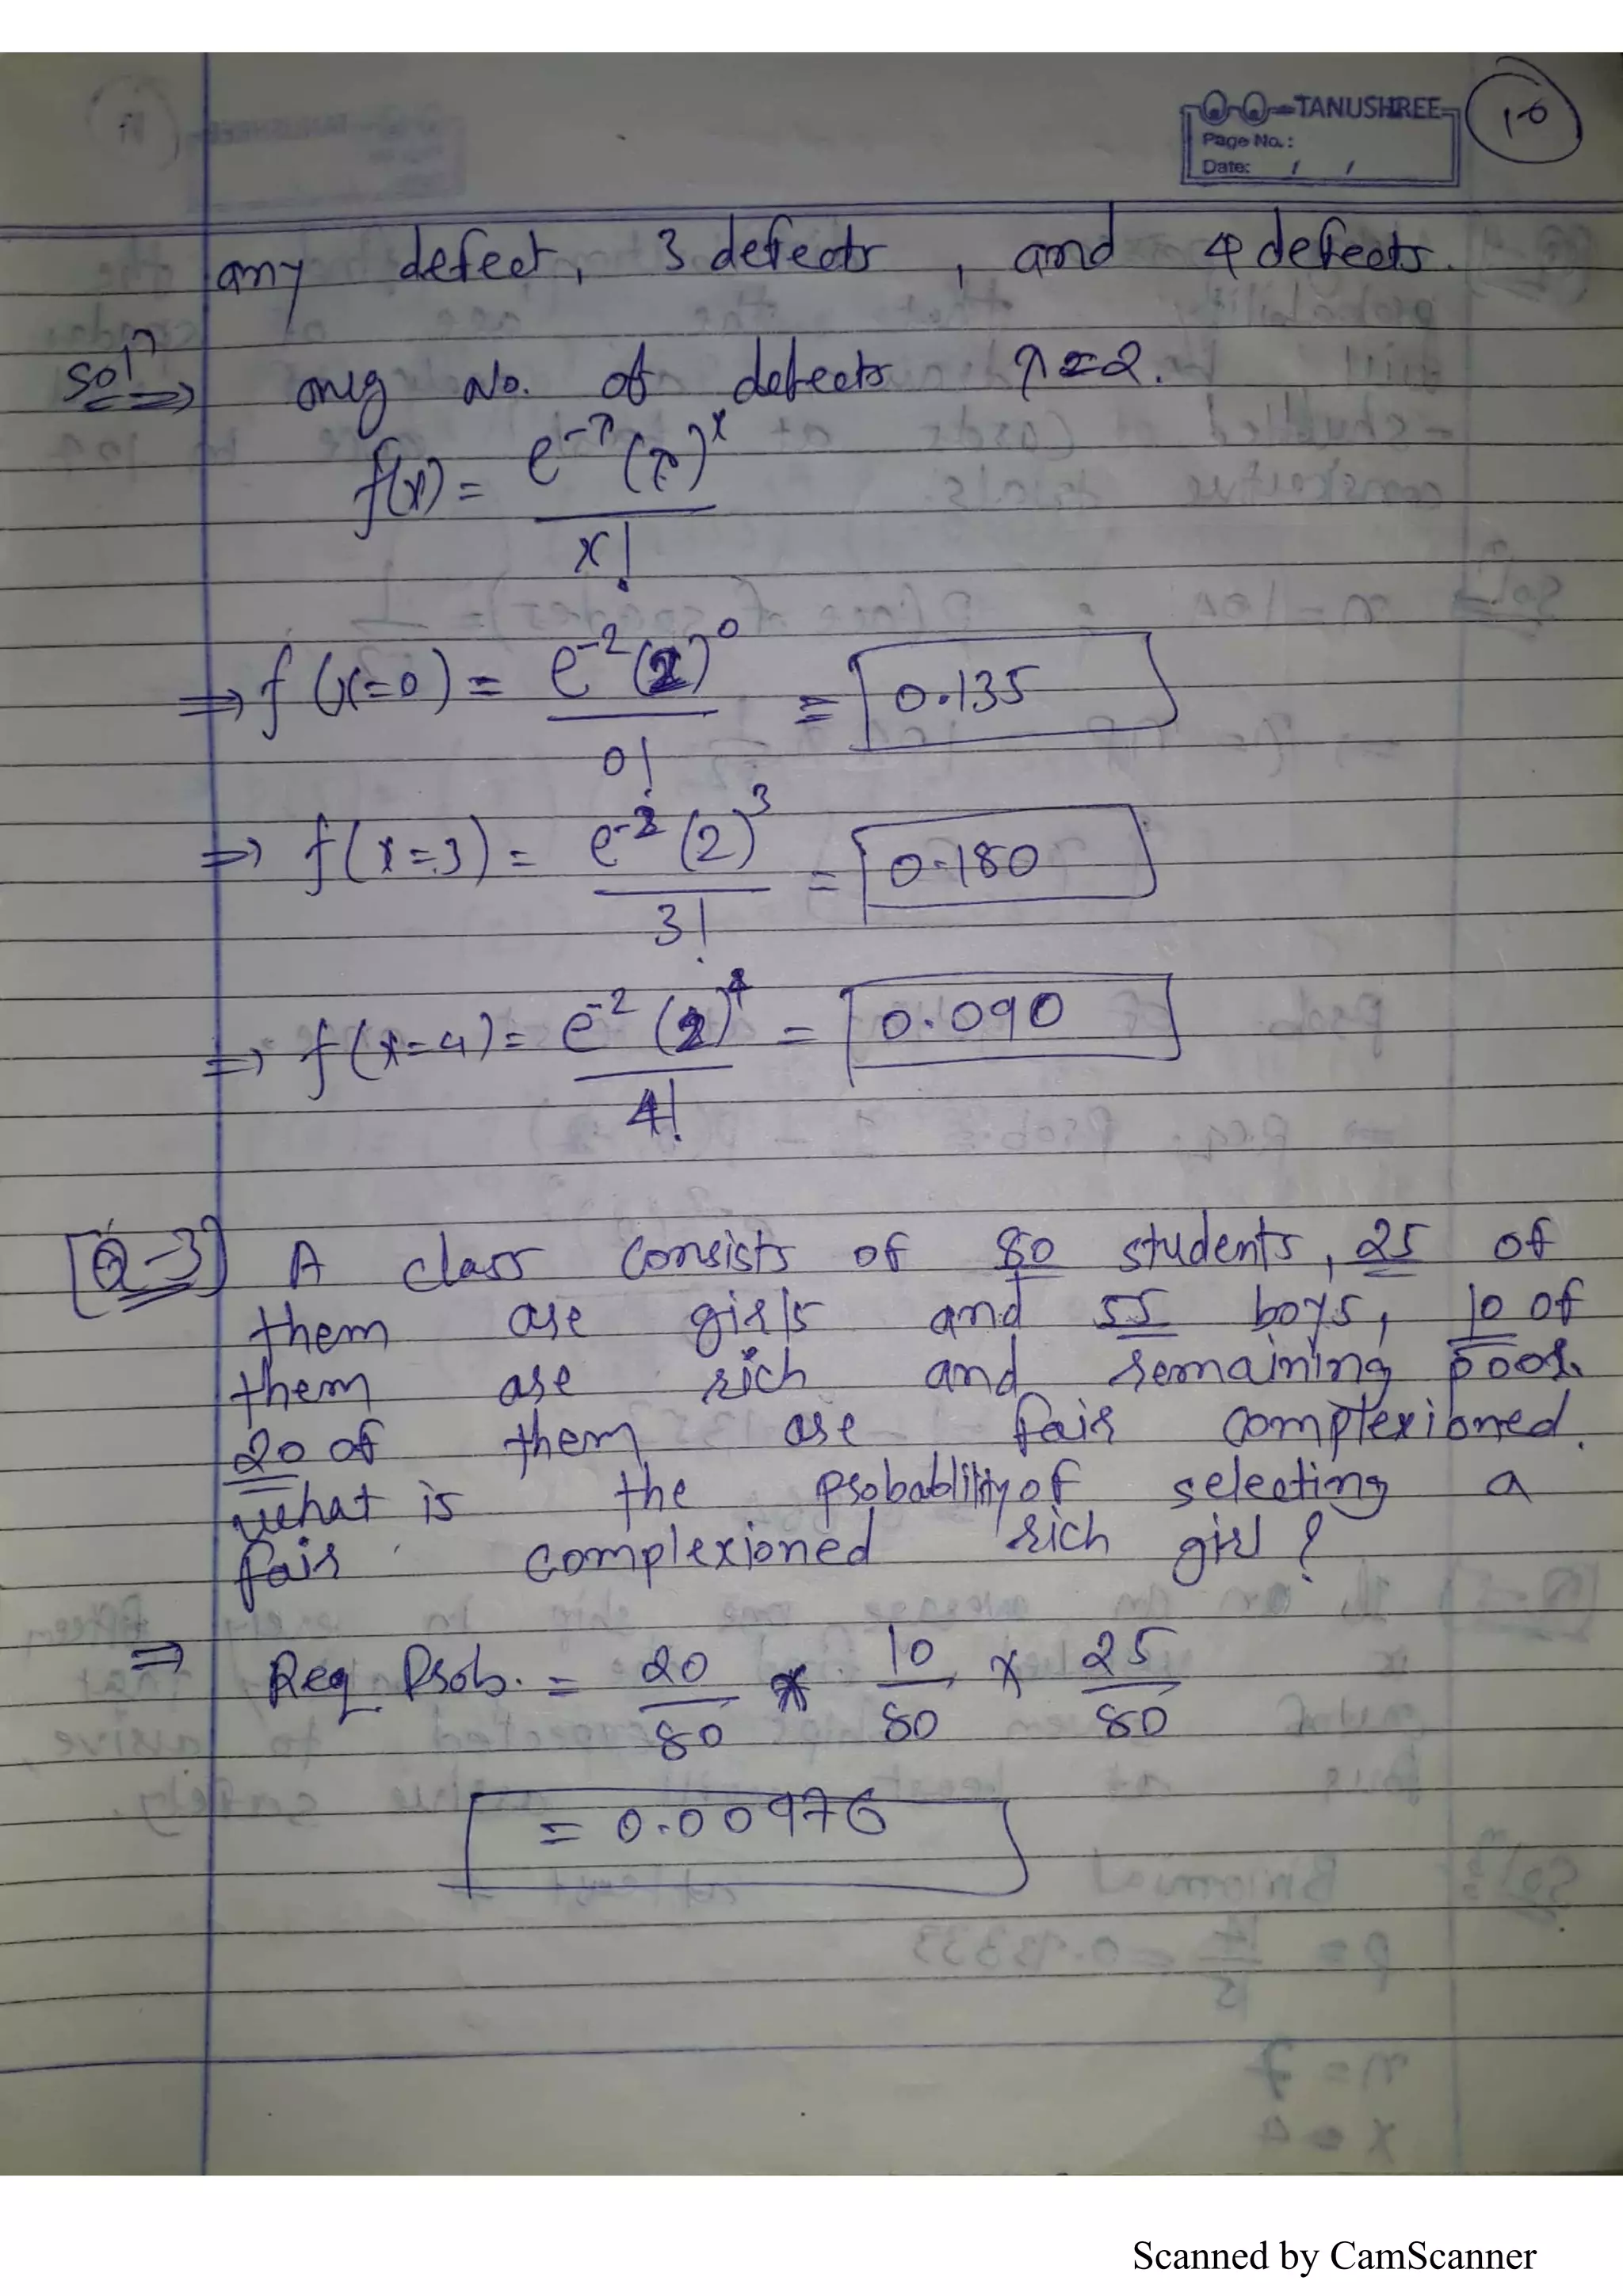 TANUSHREE
Page No.:
Date: / /
10
any defect, 3 defects, and 4 defects.
Solⁿ ⇒ avg No. of defects λ = 2.
f(x) = e^-λ (λ)^x / x!
⇒ f(x=0) = e^-2 (2)^0 / 0! = 0.135
⇒ f(x=3) = e^-2 (2)^3 / 3! = 0.180
⇒ f(x=4) = e^-2 (2)^4 / 4! = 0.090
[Q-3] A class consists of 80 students, 25 of
them are girls and 55 boys, 10 of
them are rich and remaining poor.
20 of them are fair complexioned.
what is the probablility of selecting a
fair complexioned rich girl?
⇒ Req. Prob. = 20/80 * 10/80 × 25/80
= 0.00976
Scanned by CamScanner